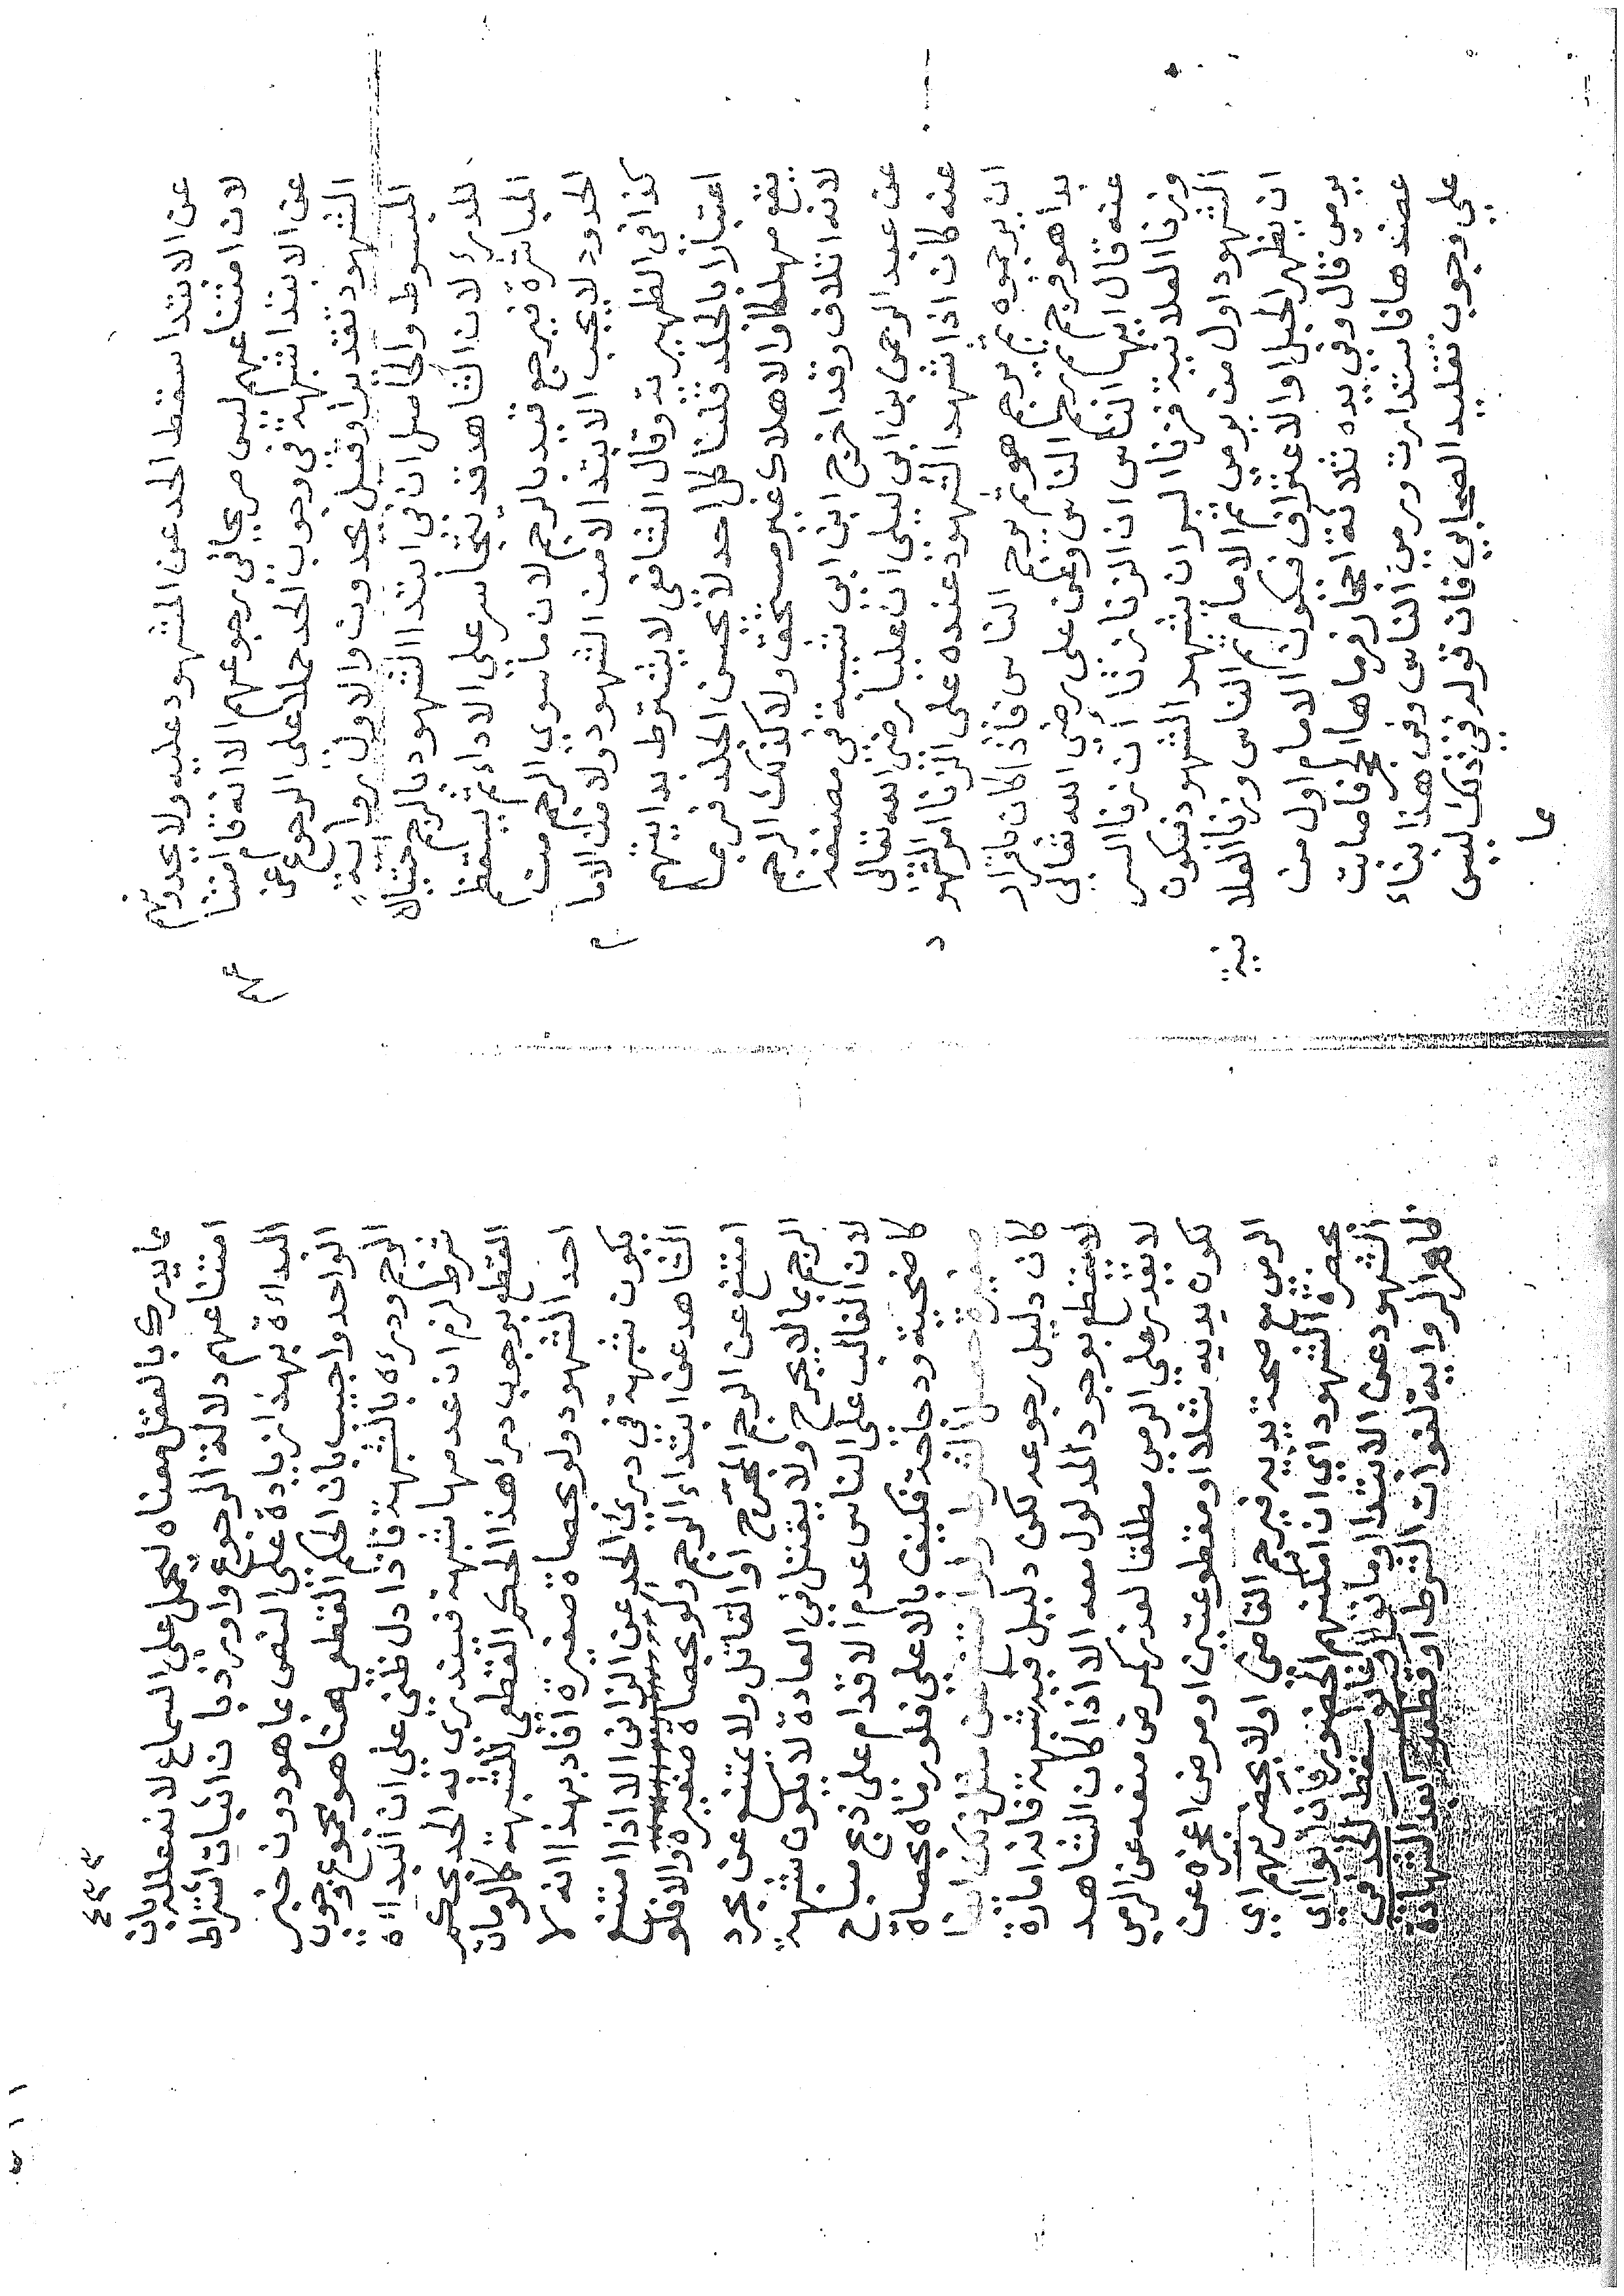 عن الابتدا سقط الحد عن المشهود عليه ولا يحدوهم
لان امتناعهم ليس صريحا في رجوعهم الا انه قام امتنا
عهم
عن الابتدا شبهة في وجوب الحد حملا على الرجوع عن
الشهود تقديرا وقيل يحدون والاول رواية
المبسوط والحاصل ان في ابتدا الشهود بالرجم احتيالا
للدرئ لان الشاهد قد يتجاسر على الاداء ثم يستعظم
المباشرة فيرجع قيد بالرجم لان ما سوي الرجم من
الحدود لا يجب الابتدا لا من الشهود ولا من الاما
م
كذا في الظهيرية وقال الشافعي لا يشترط بدايتهم
اعتبارا بالجلد قلنا كل احد لا يحسن الجلد فربما
يقع مهلكا والاهلاك غير مستحق ولا كذلك الرجم
لانه اتلاف وقد اخرج ابن ابي شيبة في مصنفه
عن عبد الرحمن بن ابي ليلى ان عليا رضي الله تعالى
عنه كان اذا شهد الشهود عنده على الزنا امر الشهو
د
ان يرجموه ثم يرجم هو ثم يرجم الناس فاذا كان باقرار
بدا هو فرجم ثم رجم الناس وعن علي رضي الله تعالى
عنه قال ايها الناس ان الزنا زنا آن زنا السر
وزنا العلانية فزنا السر ان يشهد الشهود فيكون
الشهود اول من يرمي ثم الامام ثم الناس وزنا العلا
نية
ان يظهر الحبل او الاعتراف فيكون الامام اول من
يرمي قال وفي يده ثلاثة احجار فرماها بحجر فاصاب
عضدها فاستدارت ورمي الناس وفي هذا بناء
علي وجوب تقليد الصحابي فان قوله في ذلك ليس
مما
مما يدرك بالعقل معناه ليحمل علي السماع لانه علله بان
امتناعهم دلالة الرجوع واورد بان اثبات اشتراط
البداءة بهذا زيادة على النص بما هو دون خبر
الواحد واجيب بان الحكم القطعي هنا هو مجموع وجوب
الرجم ودرئه بالشبهة فاذا دل ظني علي ان البداءة
شرط لزم ان عدمها شبهة فيندري به الحد بحكم
القطع بوجوب درا هذا الحكم القطعي للشبهة كالو بان
احد الشهود ولو بحصاة صغيرة افاد بهذا انه لا
يكون شبهة في دري الحد عن الزاني الا اذا امتنع
الشاهد عن ابتداء الرجم ولو بحصاة صغيرة والا فلو
امتنع عن الرجم المجرح او القاتل ولا يمتنع عن مجرد
الرجم بما لا يجرح ولا يقتل في العادة لا يكون شبهة
لان الغالب على الناس عدم الاقدام على ذبح مباح
كاضحية ودجاجة فكيف بالادمي فلو رماه بحصاة
صغيرة حصل الشرط
كان دليل رجوعه لكن دليل فيه شبهة فانه امارة
لا يقطع بوجود المدلول معه الا اذا كان الشاهد
لا يقدر علي الرمي مطلقا لعذر كمرض منعه عن الرمي
كون يديه شللا او مقطوعتين او مرض اعجزه عن
الرمي مع صحة يديه فيرجم القاضي اولا بحضرتهم اي
بحضرة الشهود اي ان امكنهم الحضور فان ابوا اي
الشهود عن الابتدا او ماتوا او غابوا سقط الحد في
ظاهر الرواية لفوات الشرط او قطعوا بعد الشهادة